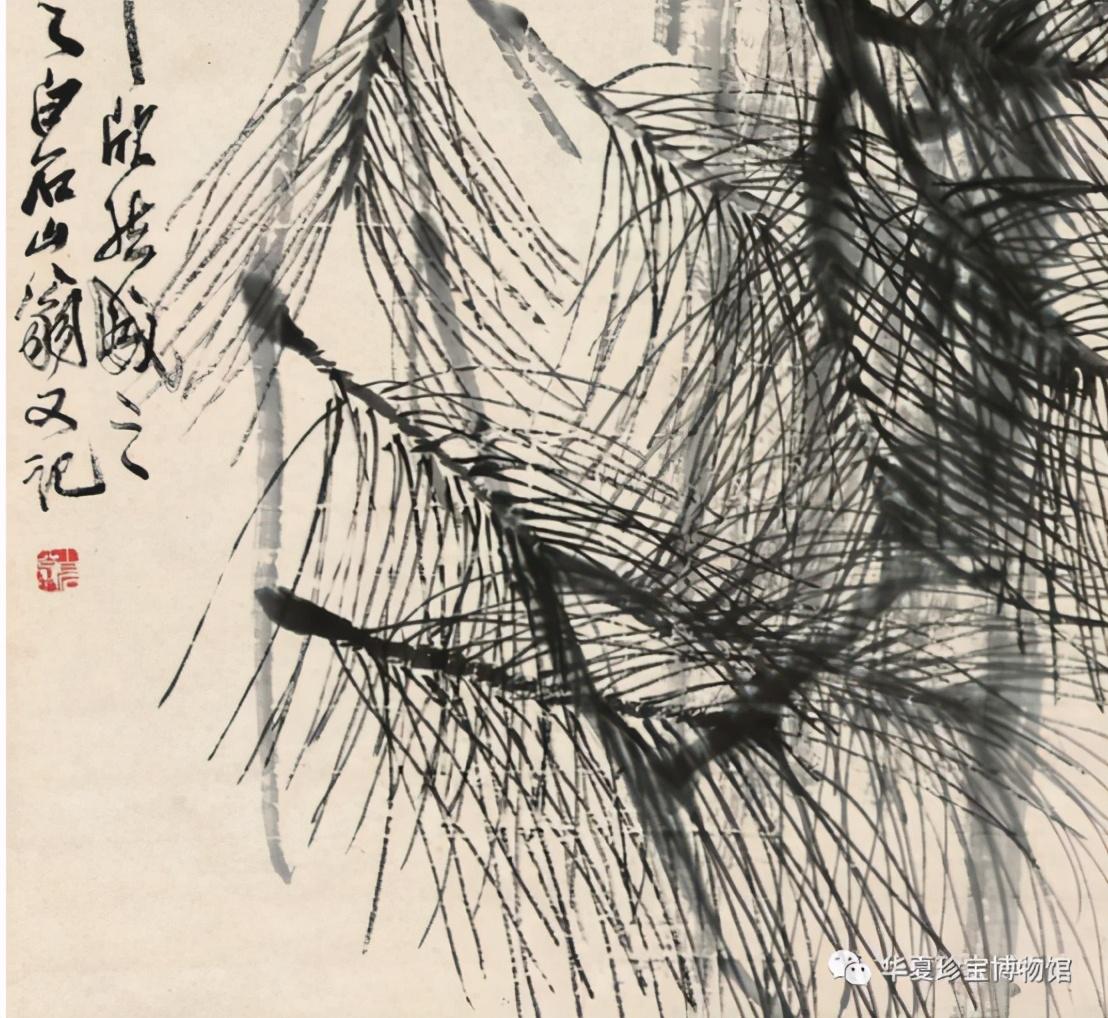 欣然之
之白石山翁又記
华夏珍宝博物馆